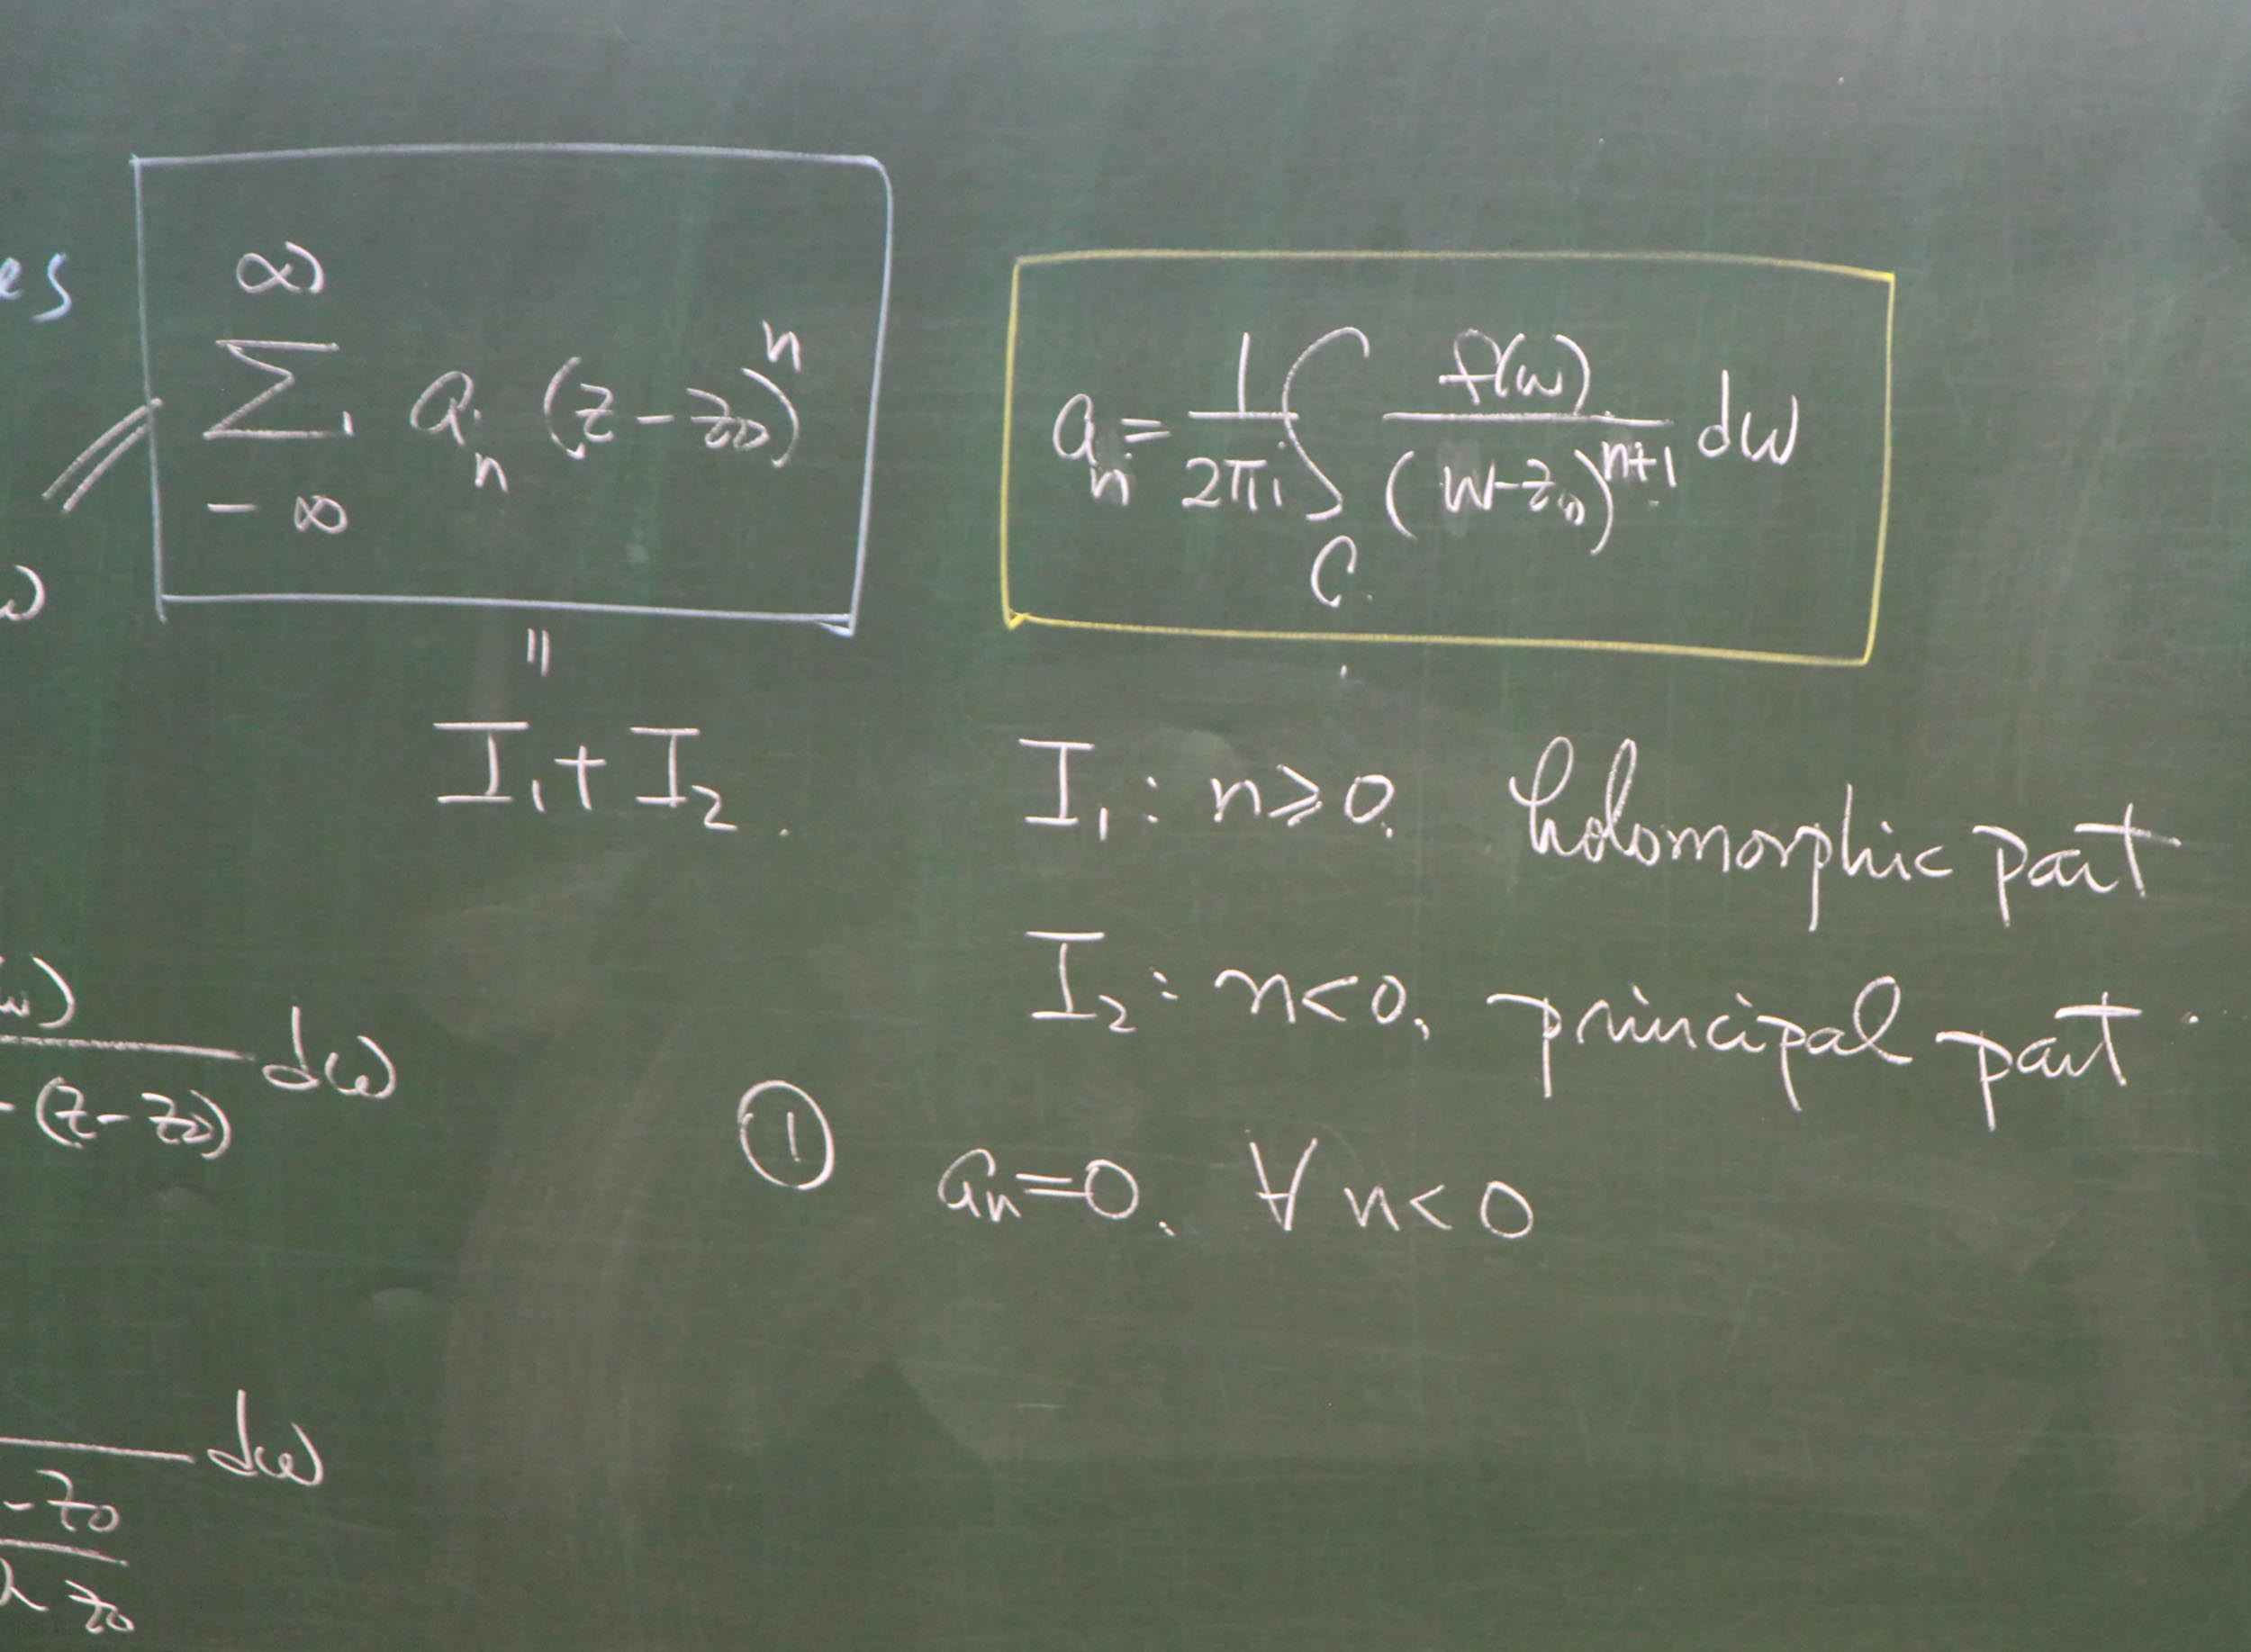 es
∞
Σ aₙ (z-z₀)ⁿ
-∞
aₙ = 1/2πi ∫_C f(w)/(w-z₀)ⁿ⁺¹ dw
ω
=
I₁+I₂.
I₁: n⩾0. holomorphic part
I₂: n<0. principal part
ω)
-(z-z₀) dω
① aₙ=0. ∀ n<0
dω
-z₀
z₀